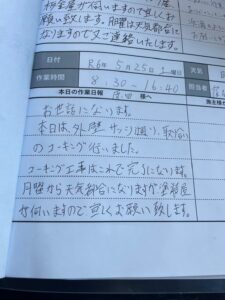 枠金屋が伺いますので宜しくお
願い致します。月曜は天気都合に
なりますので又ご連絡いたします。
日付 R6年 5月25日 土曜日 天気
作業時間 8:30 - 16:40 担当者
本日の作業日報 様へ 施主様
お世話になります。
本日は、外壁 サッシ廻り、取合い
のコーキング行いました。
コーキング工事はこれで完了になります。
月曜から天気都合になりますが塗装屋
が伺いますので宜しくお願い致します。